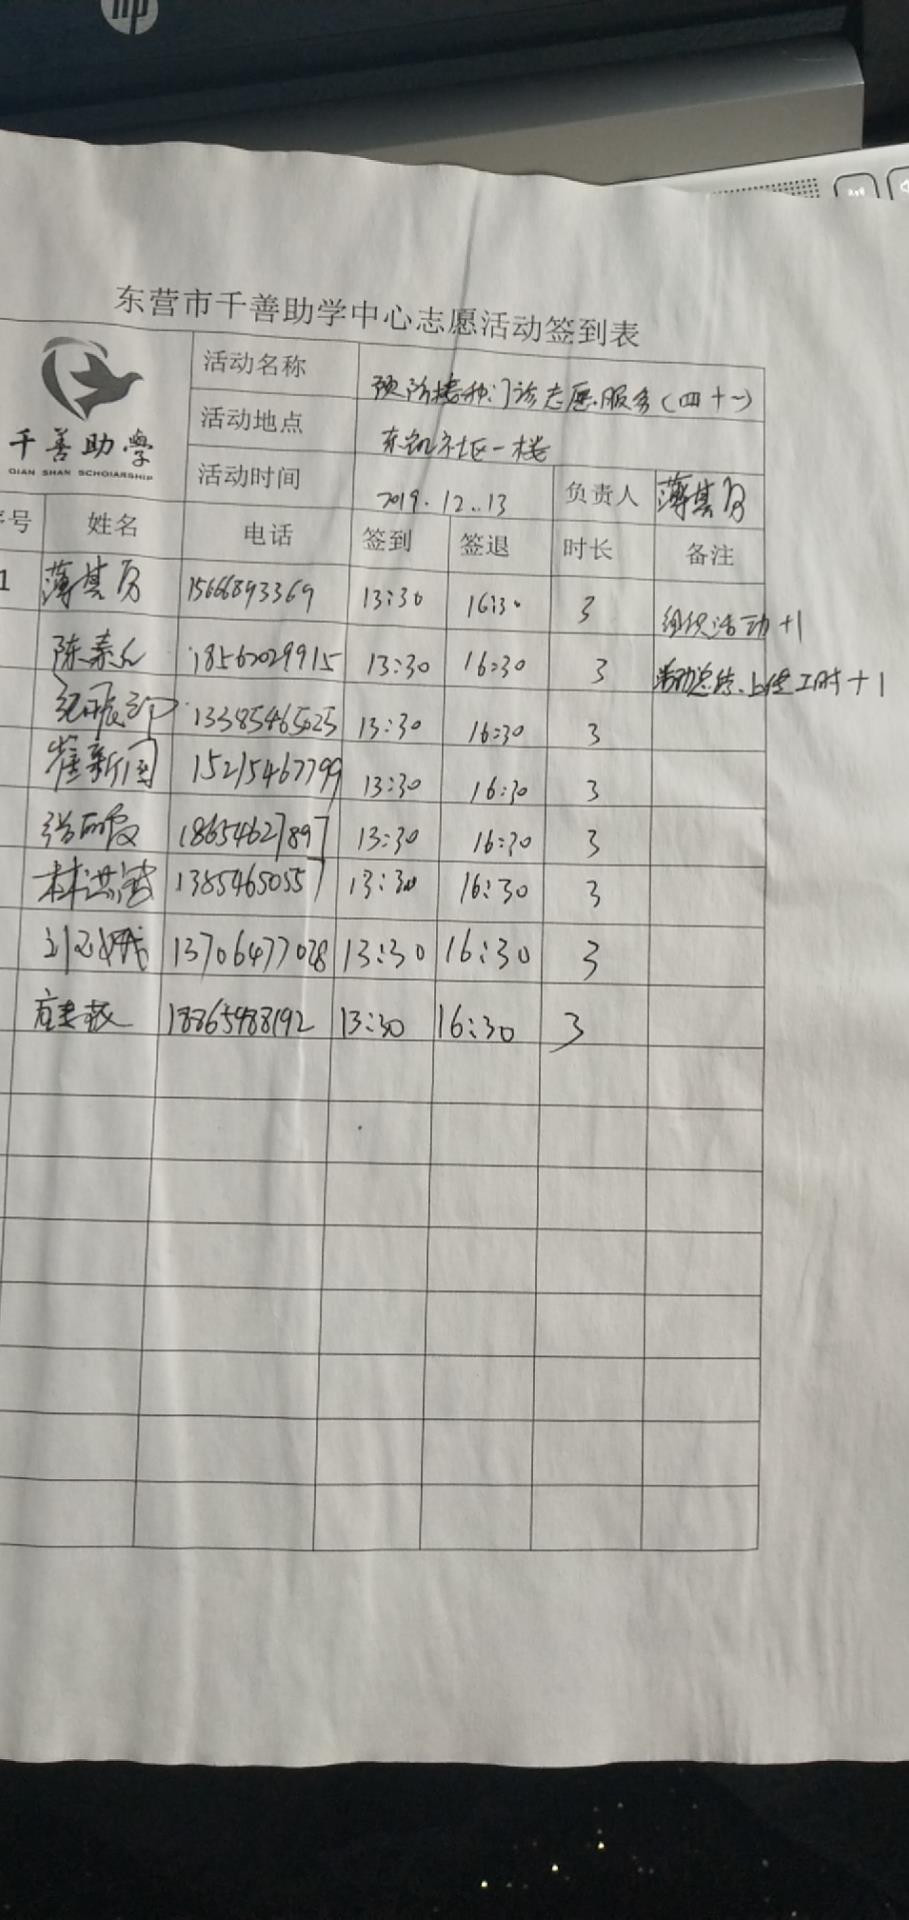 hp
东营市千善助学中心志愿活动签到表
千善助學
QIAN SHAN SCHOIARSHIP
活动名称 预防接种门诊志愿服务(四十一)
活动地点 东凯社区一楼
活动时间 2019.12.13 负责人 薄其
序号 姓名 电话 签到 签退 时长 备注
1 薄其 15666893369 13:30 16:30 3 组织活动+1
陈素 18562029915 13:30 16:30 3 活动总结、上传工时+1
纪 13385465625 13:30 16:30 3
崔新国 15215467799 13:30 16:30 3
张 18654627897 13:30 16:30 3
林洪 13854650557 13:30 16:30 3
刘 13706477028 13:30 16:30 3
18865988192 13:30 16:30 3